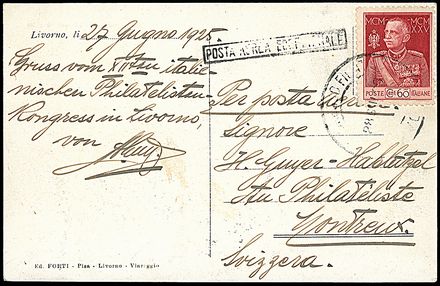 Livorno, li 27 Giugno 1925
POSTA AEREA
Gruss vom XIIten italie-
nischen Philatelisten-
Kongress in Livorno,
von
MCM XXV
POSTE C 60 ITALIANE
Per posta
Signore
H. Guyer-Hablützel
Au Philatéliste
Montreux.
Svizzera.
Ed. FORTI - Pisa - Livorno - Viareggio